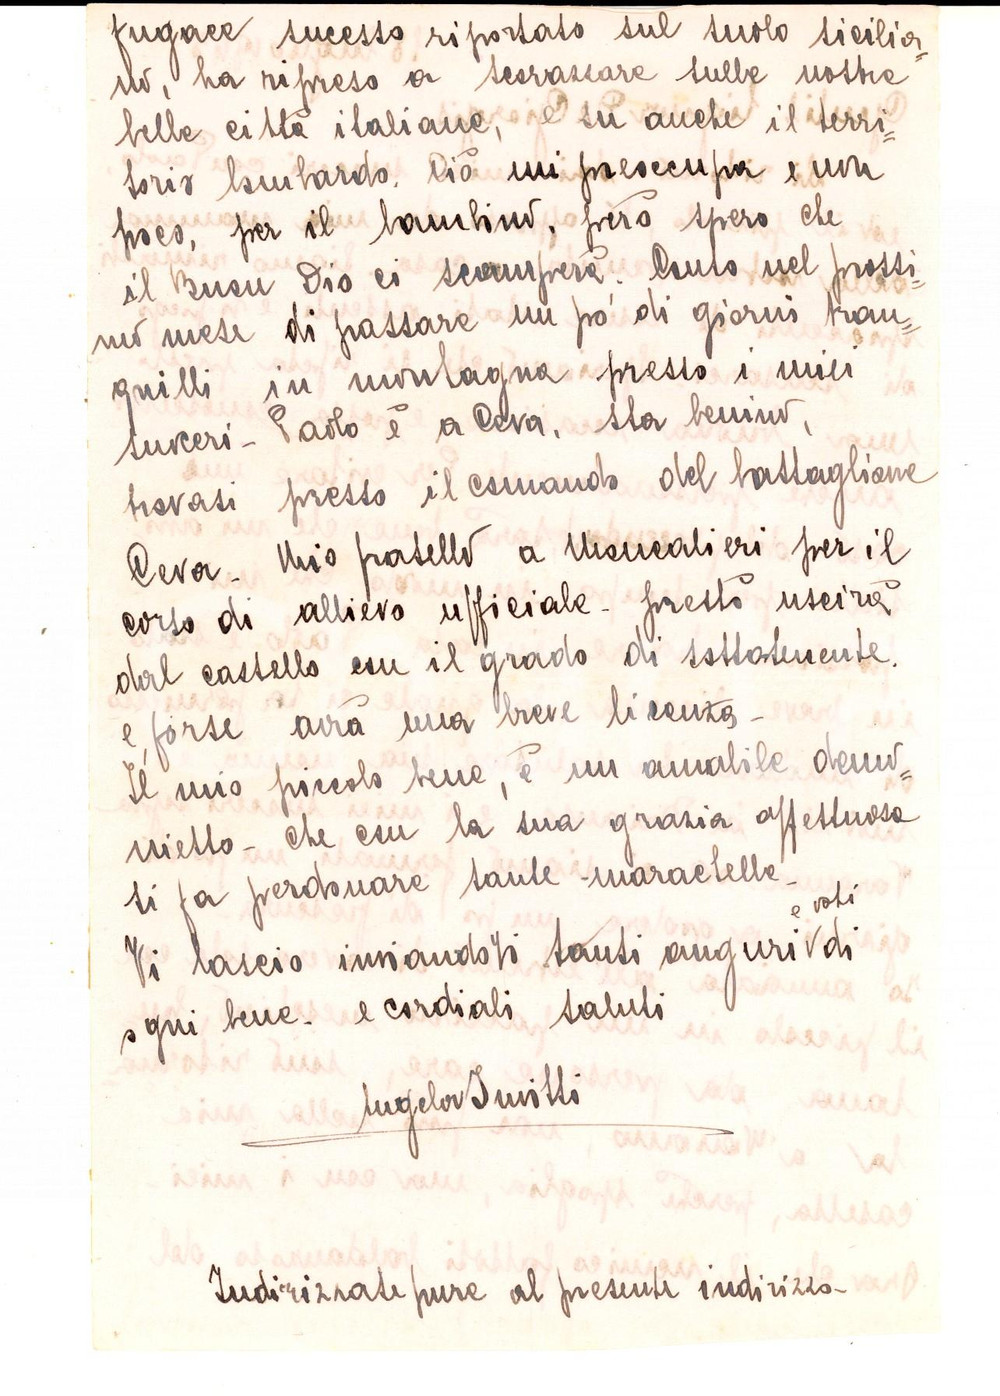 fugace sucesso riportato sul suolo sicilia=
no, ha ripreso a scorassare sulle nostre
belle città italiane, e su anche il terri=
torio lombardo. Ciò mi preoccupa e non
poco, per il bambino, però spero che
il Buon Dio ci scamperà. Conto nel prossi=
mo mese di passare un pò di giorni tran=
quilli in montagna presso i miei
suoceri - Paolo è a Ceva, sta benino,
trovasi presso il comando del battaglione
Ceva - Mio fratello a Moncalieri per il
corso di allievo ufficiale - presto uscirà
dal castello con il grado di sottotenente.
e, forse avrà una breve licenza -
Il mio piccolo bene, è un amabile demo=
nietto - che con la sua grazia affettuosa
si fa perdonare tante -maractelle-
e voti
Vi lascio inviandoVi tanti auguri di
ogni bene - e cordiali saluti
Angelo
Indirizzate pure al presente indirizzo -